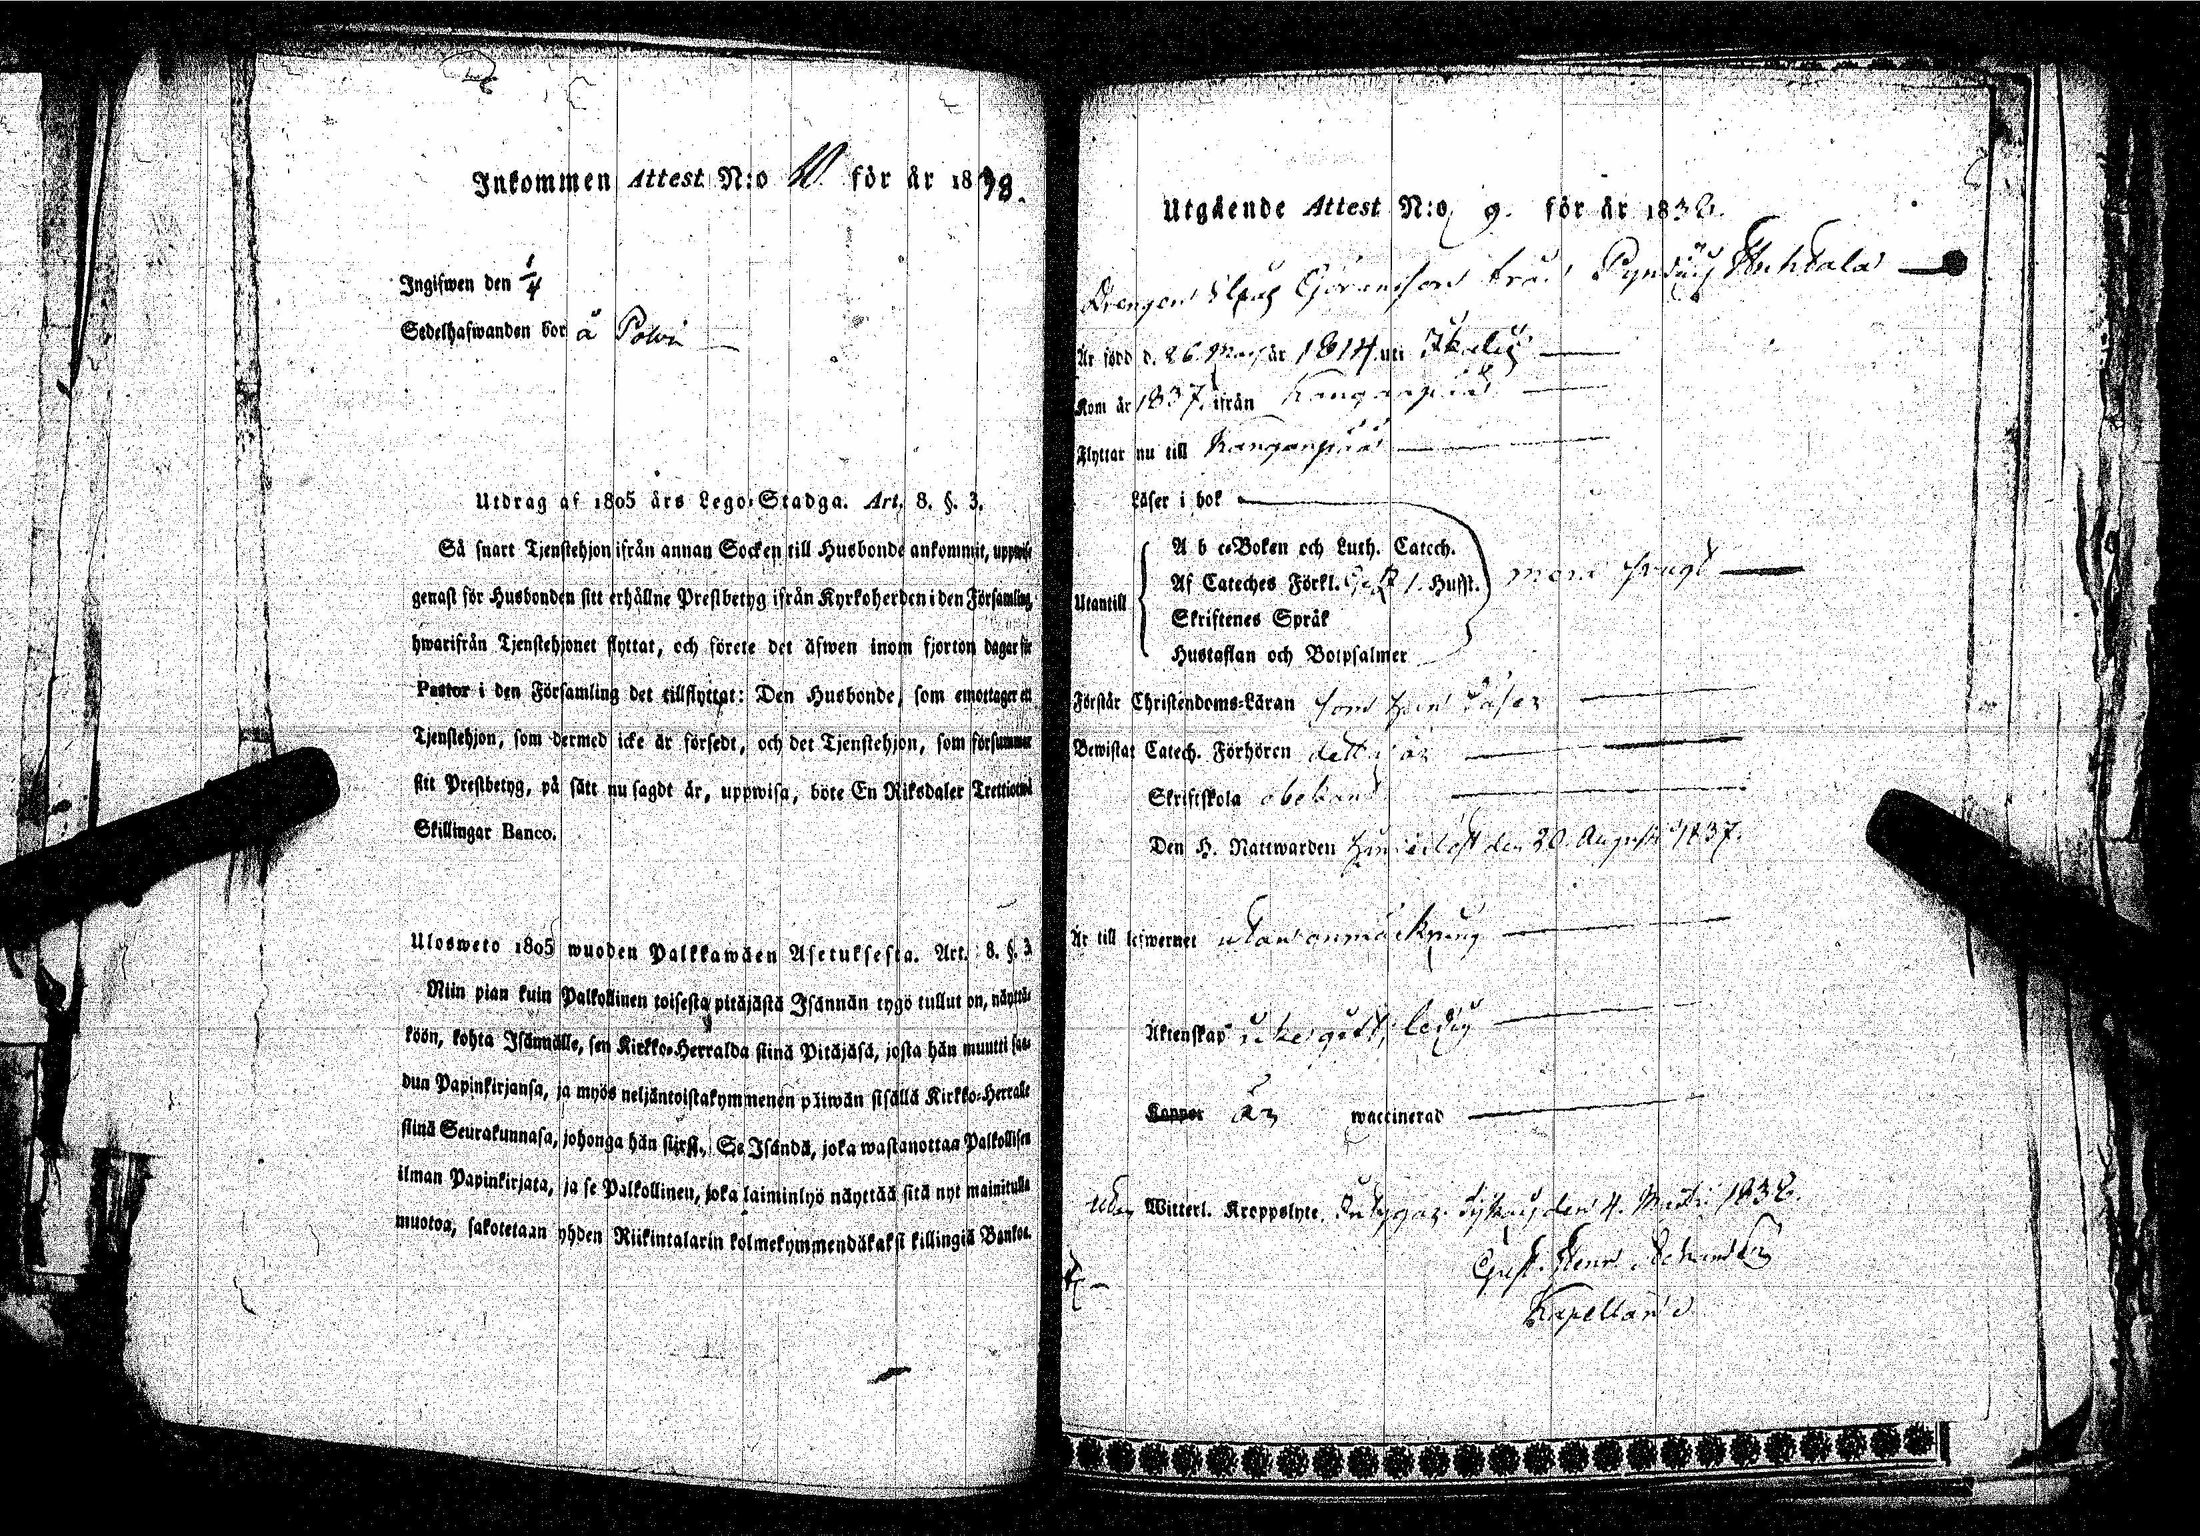 Inkommen Attest N:o 10. för år 1838.
Ingifwen den 1/4
Sedelhafwanden bor å Polvi
Utdrag af 1805 års Lego-Stadga. Art. 8. §. 3.
Så snart Tjenstehjon ifrån annan Socken till Husbonde ankommit, uppwise
genast för Husbonden sitt erhållne Prestbetyg ifrån Kyrkoherden i den Församling,
hwarifrån Tjenstehjonet flyttat, och förete det äfwen inom fjorton dagar för
Pastor i den Församling det tillflyttat: Den Husbonde, som emottager ett
Tjenstehjon, som dermed icke är försedt, och det Tjenstehjon, som försummar
sitt Prestbetyg, på sätt nu sagdt är, uppwisa, böte En Riksdaler Trettiotwå
Skillingar Banco.
Ulosweto 1805 wuoden Palkkawäen Asetuksesta. Art. 8. §. 3
Niin pian kuin Palkollinen toisesta pitäjästä Isännän tygö tullut on, näyttä-
köön, kohta Isännälle, sen Kirkko-Herralda siinä Pitäjäsä, josta hän muutti saa-
dun Papinkirjansa, ja myös neljäntoistakymmenen päiwän sisällä Kirkko-Herralle
siinä Seurakunnasa, johonga hän siirsi. Se Isändä, joka wastanottaa Palkollisen
ilman Papinkirjata, ja se Palkollinen, joka laiminlyö näyttää sitä nyt mainitulla
muotoa, sakotetaan yhden Riikintalarin kolmekymmendäkaksi killingiä Bankos.
Utgående Attest N:o 9. för år 1838.
Drengen Göransson från
Är född d. 26. Maj år 1814 uti Ikalis
Kom år 1837. ifrån Kangarpää
Flyttar nu till Kangarpää
Läser i bok
Utantill
A b c-Boken och Luth. Catech.
Af Cateches Förkl. 1. Husst.
Skriftenes Språk
Hustaflan och Botpsalmer
Förstår Christendoms-Läran som han läser
Bewistat Catech. Förhören detta år
Skriftskola obekant
Den H. Nattwarden den 20. Augusti 1837.
Är till lefwernet utan anmärkning
Äktenskap ledig
Koppor är waccinerad
utan Witterl. Kroppslyte. den 4. 1838.
Gust. Henr.
Kapellan